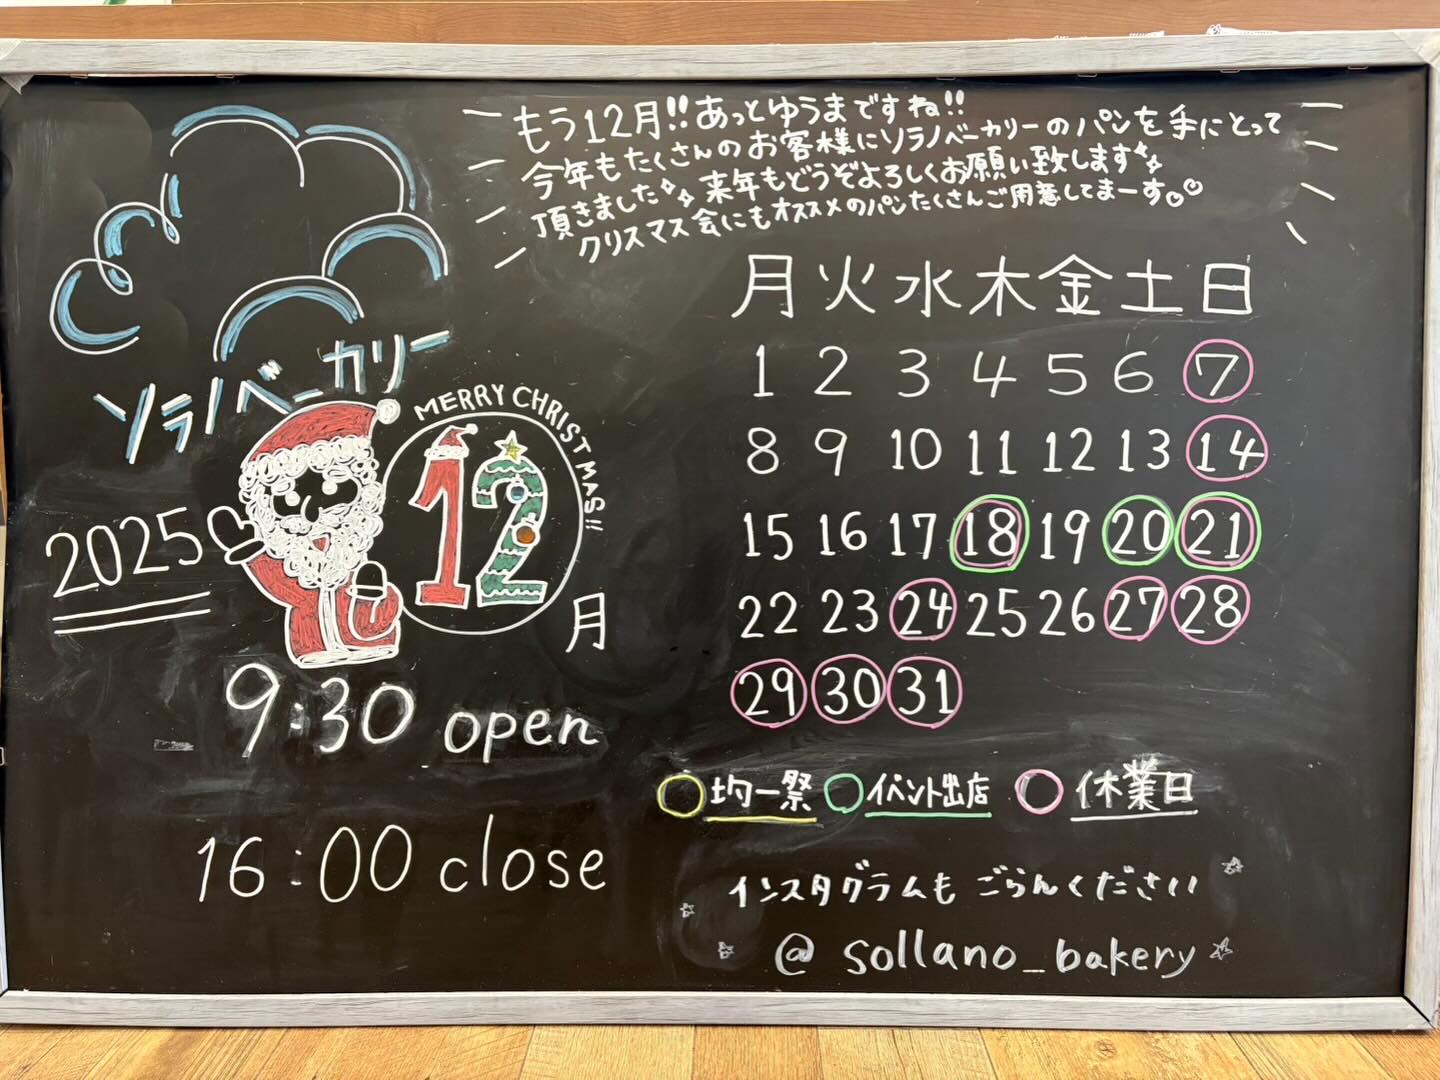 もう12月!!あっとゆうまですね!!
今年もたくさんのお客様にソラノベーカリーのパンを手にとって
頂きました 来年もどうぞよろしくお願い致します
クリスマス会にもオススメのパンたくさんご用意してまーす
ソラノベーカリー
MERRY CHRISTMAS!!
2025
12月
9:30 open
16:00 close
月 火 水 木 金 土 日
1 2 3 4 5 6 7
8 9 10 11 12 13 14
15 16 17 18 19 20 21
22 23 24 25 26 27 28
29 30 31
均一祭 イベント出店 休業日
インスタグラムも ごらんください
@ sollano_bakery